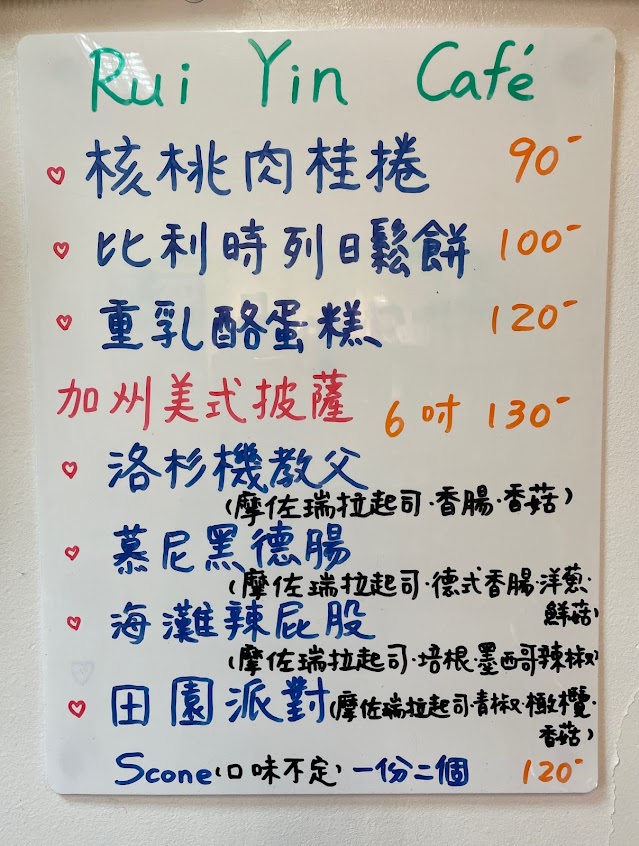 Rui Yin Café
♡ 核桃肉桂捲 90-
♡ 比利時列日鬆餅 100-
♡ 重乳酪蛋糕 120-
加州美式披薩 6吋 130-
♡ 洛杉機教父
(摩佐瑞拉起司·香腸·香菇)
♡ 慕尼黑德腸
(摩佐瑞拉起司·德式香腸·洋蔥·
鮮菇)
♡ 海灘辣屁股
(摩佐瑞拉起司·培根·墨西哥辣椒)
♡ 田園派對(摩佐瑞拉起司·青椒·橄欖·
香菇)
Scone(口味不定)一份二個 120-